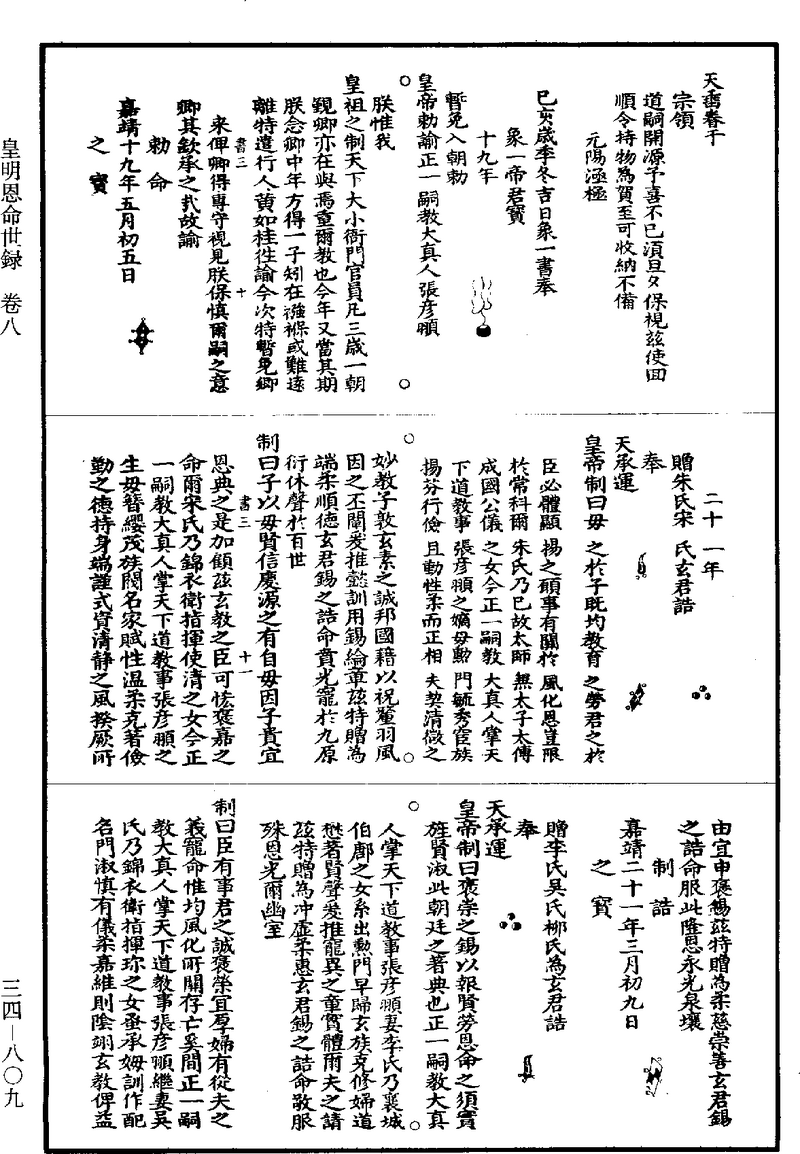 皇明恩命世録　卷八
三四—八〇九
天啚春于
宗領
道嗣開源予喜不已湏旦夕保視兹使囬
順令持物為賀至可收納不備
元陽涵極
己亥歲季冬吉日象一書奉
象一帝君寳
十九年
暫免入朝勅
皇帝勅諭正一嗣教大真人張彦頨
朕惟我
皇祖之制天下大小衙門官員凡三歲一朝
覲卿亦在與焉重爾教也今年又當其期
朕念卿中年方得一子矧在襁褓或難逺
離特遣行人黄如桂徃諭今次特暫免卿
書三　十
来俾卿得專守視見朕保慎爾嗣之意
卿其欽承之故諭
勅命
嘉靖十九年五月初五日
之寳
二十一年
贈朱氏宋氏玄君誥
奉
天承運
皇帝制曰毋之於子旣均教育之勞君之於
臣必體顯揚之頋事有關於風化恩豈限
於常科爾朱氏乃已故太師無太子太傅
成國公儀之女今正一嗣教大真人掌天
下道教事張彦頨之嫡毋勲門毓秀宦族
揚芬行儉且動性柔而正相夫契清微之
妙教子敦玄素之誠邦國藉以祝釐羽風
因之丕闡爰推懿訓用錫綸章兹特贈為
端柔順德玄君錫之誥命賁光寵於九原
衍休聲於百世
書三　十一
制曰子以毋賢信慶源之有自毋因子貴宜
恩典之是加頋兹玄教之臣可恡褒嘉之
命爾宋氏乃錦衣衛指揮使清之女今正
一嗣教大真人掌天下道教事張彦頨之
生毋簮纓茂族閥名家賦性温柔克著儉
勤之德持身端謹式資清静之風揆厥所
由宜申褒錫兹特贈為柔慈崇善玄君錫
之誥命服此隆恩永光泉壤
制誥
嘉靖二十一年三月初九日
之寳
贈李氏吳氏柳氏為玄君誥
奉
天承運
皇帝制曰褒崇之錫以報賢勞恩命之須實
旌賢淑此朝廷之著典也正一嗣教大真
人掌天下道教事張彦頨妻李氏乃襄城
伯鄌之女系出勲門早歸玄族克修婦道
懋著賢聲爰推寵異之章實體爾夫之請
兹特贈為冲虚柔惠玄君錫之誥命敬服
殊恩光爾幽室
制曰臣有事君之誠褒榮宜厚婦有從夫之
義寵命惟均風化所關存亡奚間正一嗣
教大真人掌天下道教事張彦頨繼妻吳
氏乃錦衣衛指揮珎之女蚤承姆訓作配
名門淑慎有儀柔嘉維則隂翊玄教俾益